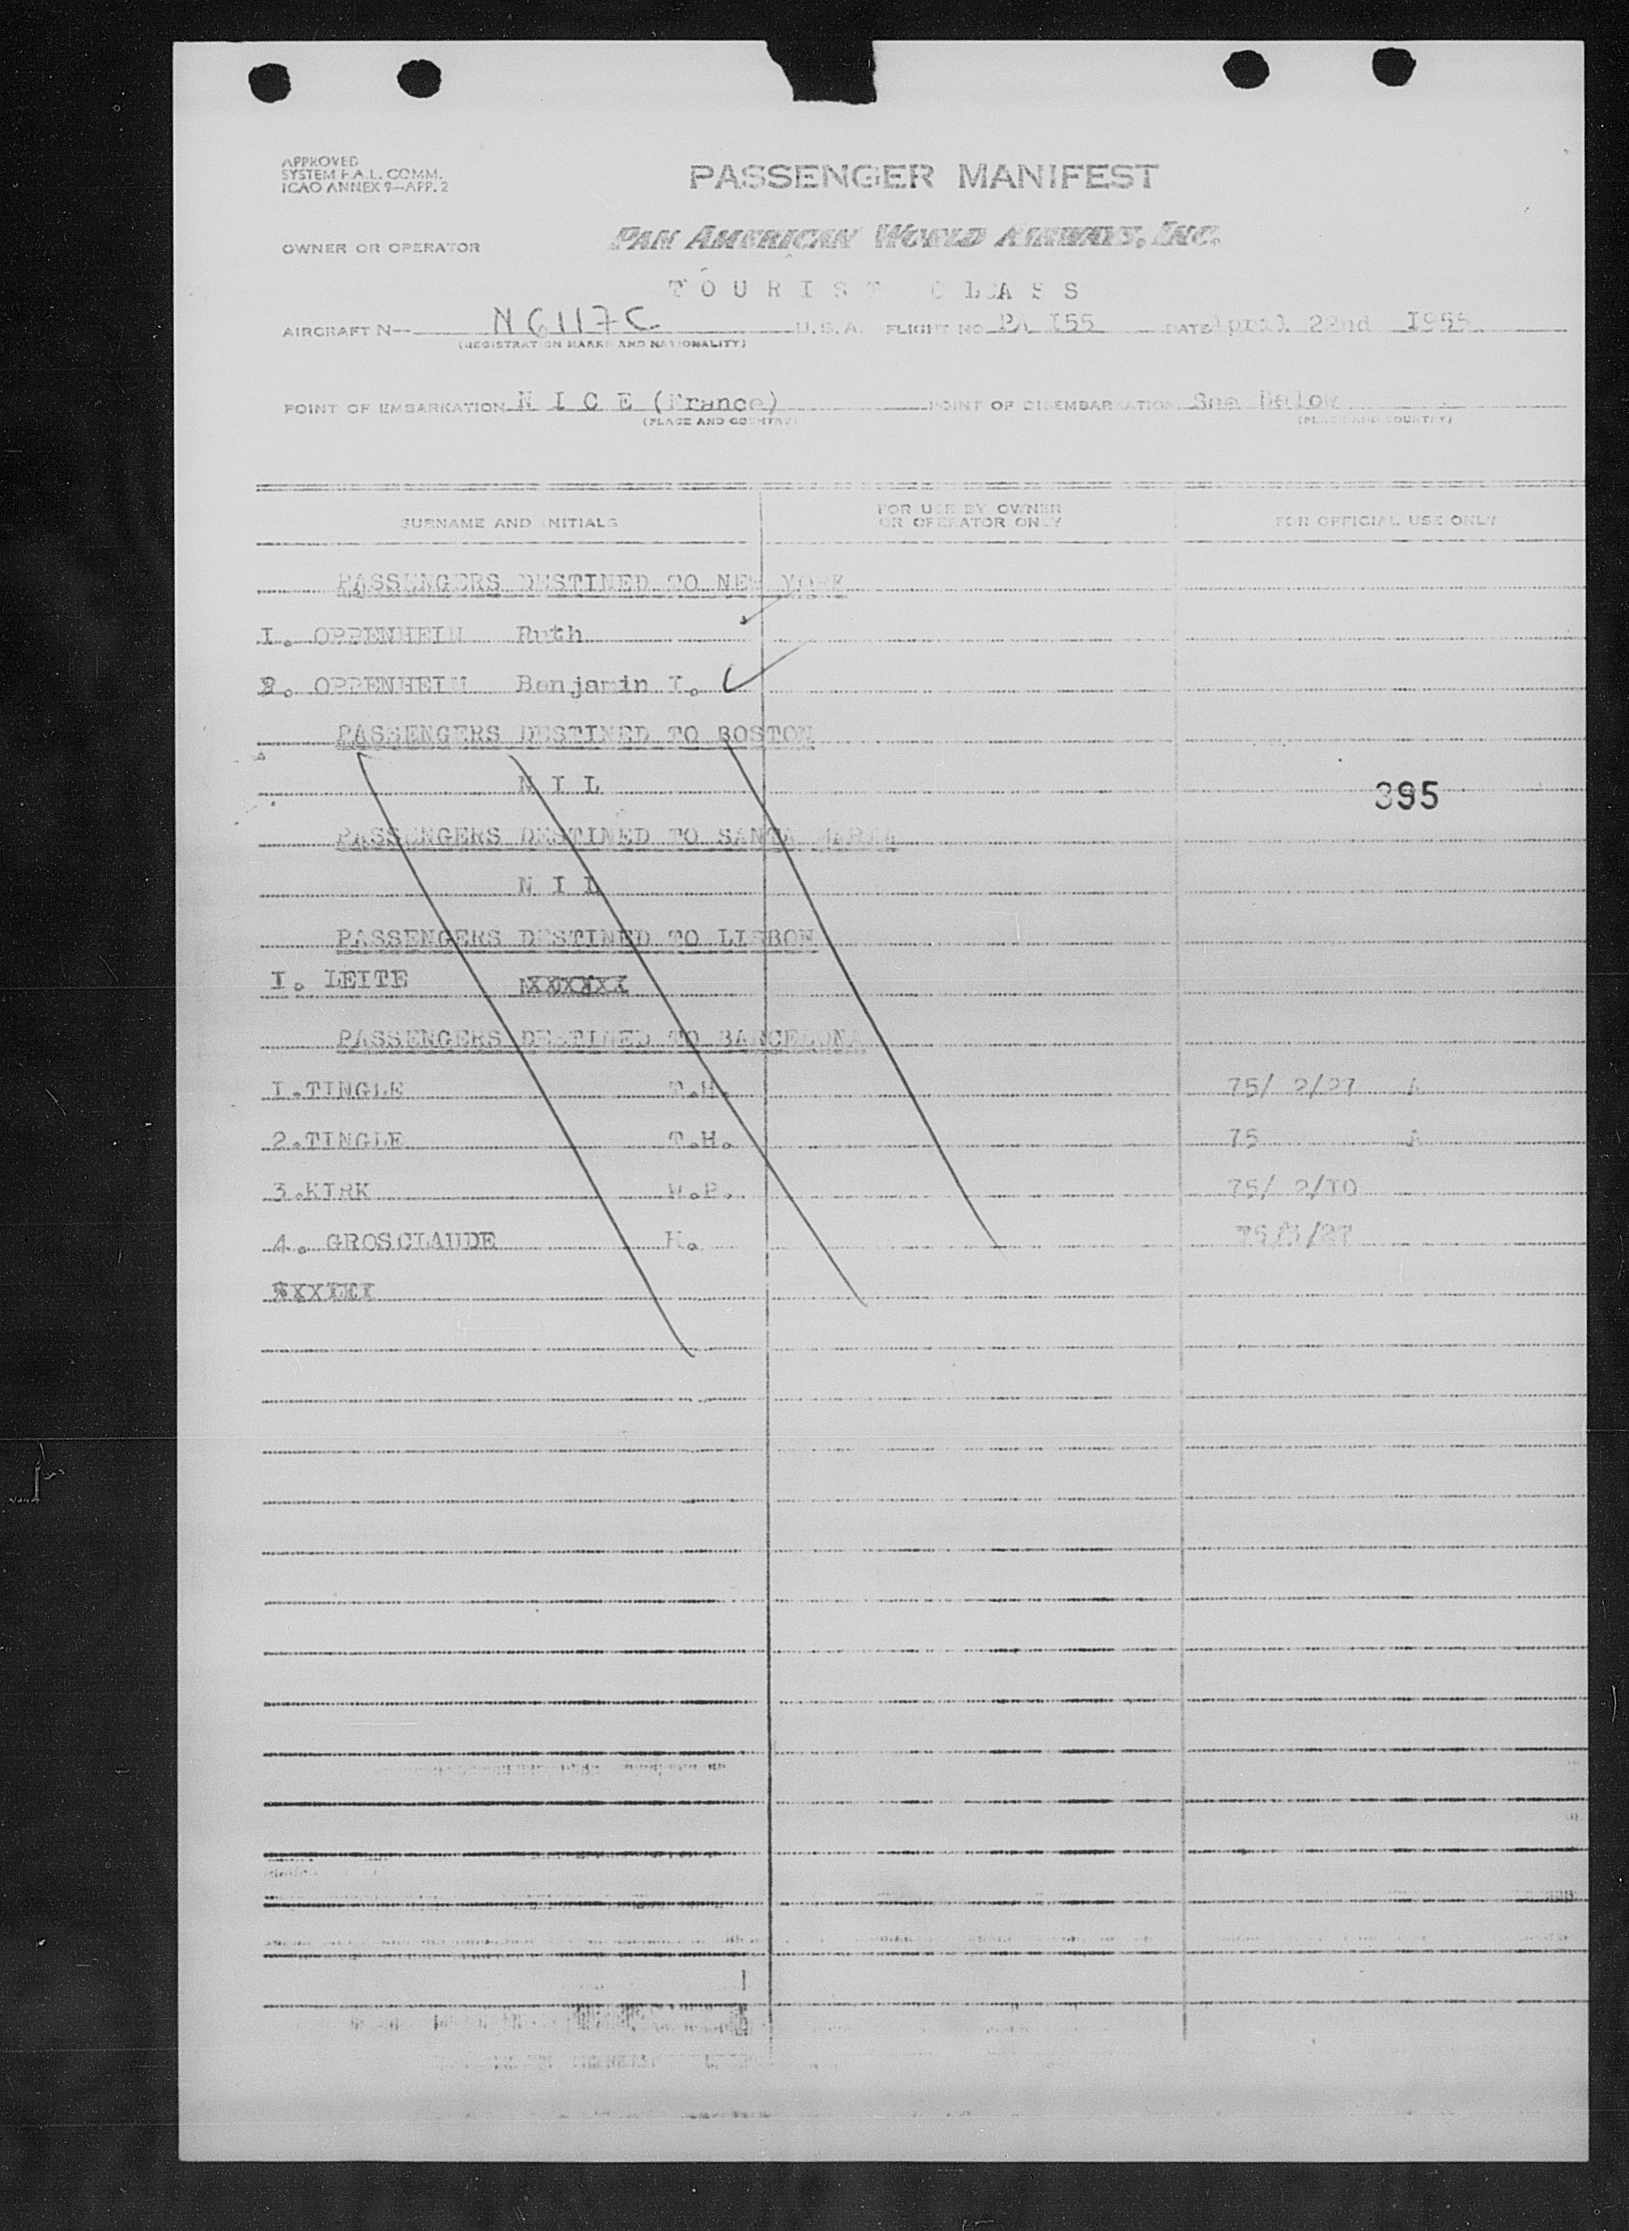 APPROVED
SYSTEM F.A.L. COMM.
ICAO ANNEX 9—APP. 2
PASSENGER MANIFEST
OWNER OR OPERATOR PAN AMERICAN WORLD AIRWAYS, INC.
T O U R I S T C L A S S
AIRCRAFT N— N6117C U.S.A. FLIGHT NO PA I55 DATE April 22nd I955
(REGISTRATION MARKS AND NATIONALITY)
POINT OF EMBARKATION N I C E (France) POINT OF DISEMBARKATION See Below
(PLACE AND COUNTRY) (PLACE AND COUNTRY)
SURNAME AND INITIALS FOR USE BY OWNER OR OPERATOR ONLY FOR OFFICIAL USE ONLY
PASSENGERS DESTINED TO NEW YORK
I. OPPENHEIM Ruth
2. OPPENHEIM Benjamin I.
PASSENGERS DESTINED TO BOSTON
N I L
395
PASSENGERS DESTINED TO SANTA MARIA
N I L
PASSENGERS DESTINED TO LISBON
I. LEITE
PASSENGERS DESTINED TO BARCELONA
I.TINGLE T.H. 75/ 2/27 A
2.TINGLE T.H. 75 A
3.KIRK 75/ 2/I0
4. GROSCLAUDE H.